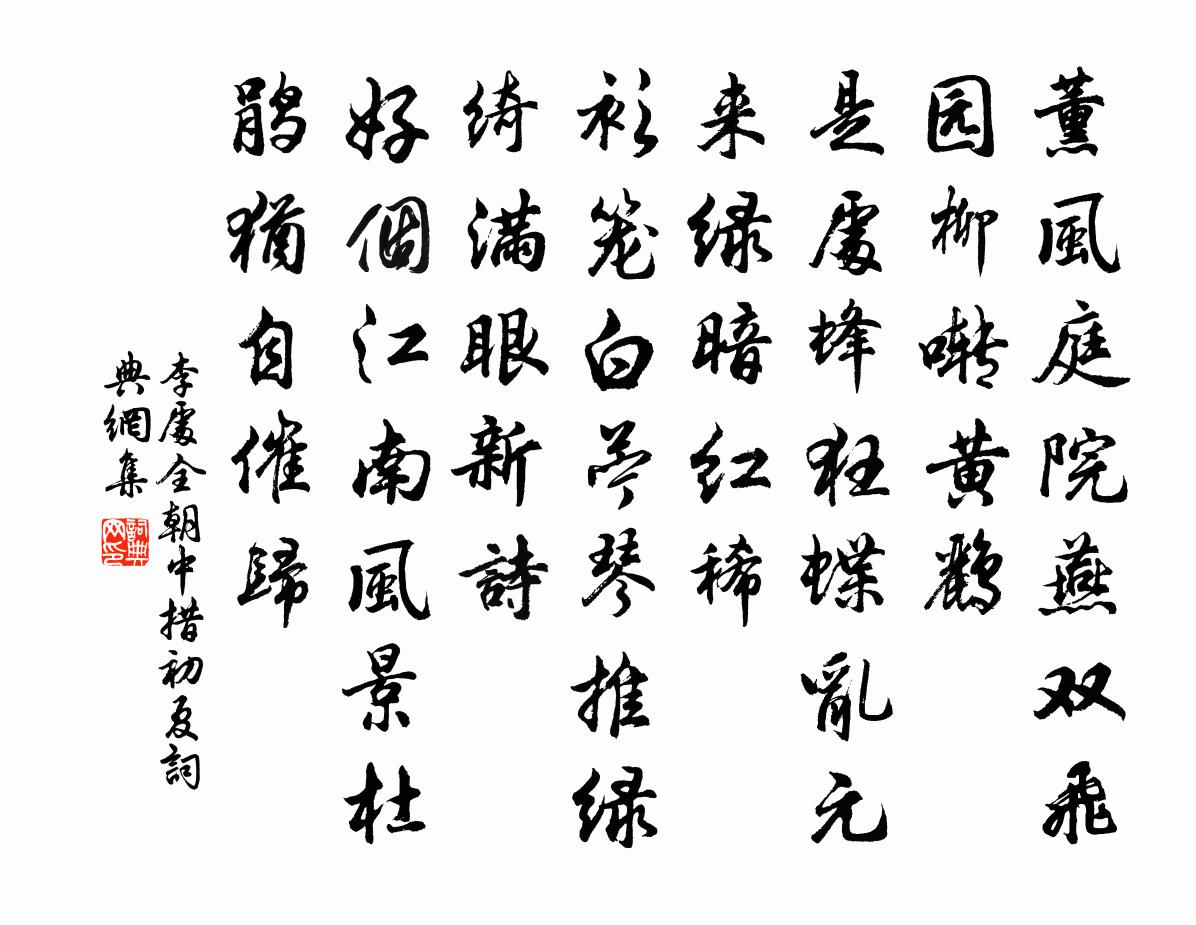 薰風庭院燕双飛
园柳啭黄鹂
是處蜂狂蝶亂元
来绿暗红稀
衫笼白苎琴推绿
绮满眼新詩
好個江南風景杜
鹃猶自催歸
李處全朝中措初夏詞
典網集
詞典网印